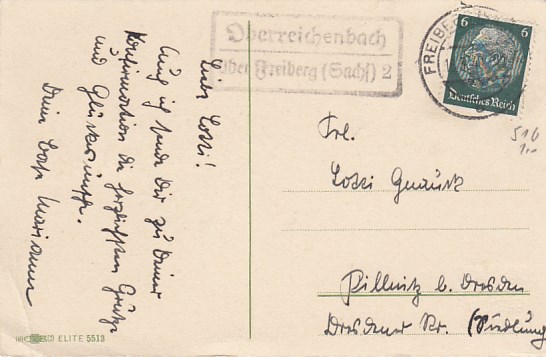 Oberreichenbach
über Freiberg (Sachs) 2
FREIBERG
6 6
Deutsches Reich
516
1,-
Liebe Lotti!
Auch ich sende Dir zu Deiner
Konfirmation die herzlichsten Grüße
und Glückwünsche.
Deine Base Marianne
Frl.
Lotti
Pillnitz b. Dresden
Dresdner Str. (Siedlung
ELITE 5513